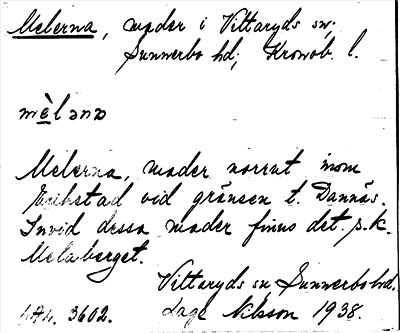 Melerna, mader i Vittaryds sn;
Sunnerbo hd; Kronob. l.
mèlənɒ
Melerna, mader norrut inom
Erikstad vid gränsen t. Dannäs.
Invid dessa mader finns det s.k.
Melaberget.
Vittaryds sn, Sunnerbo hd.
3602. Lage Nilsson 1938.